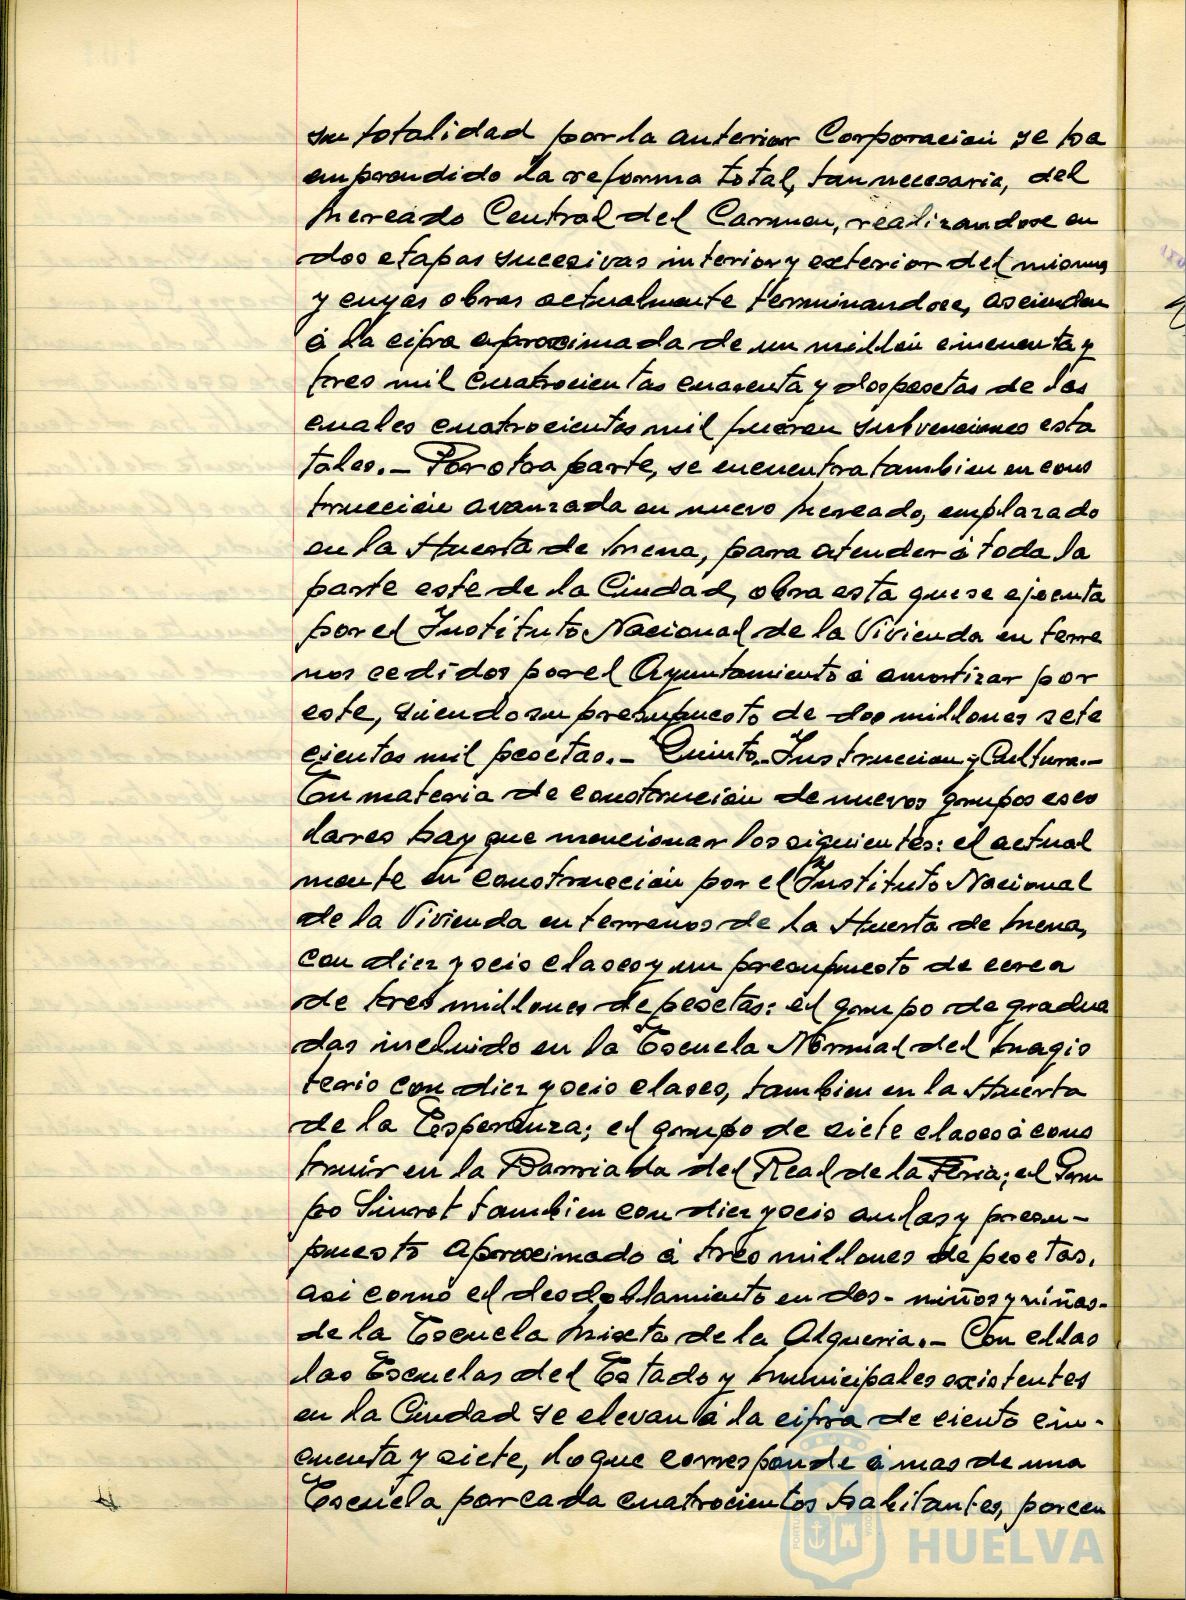 su totalidad por la anterior Corporación se ha
emprendido la reforma total, tan necesaria, del
Mercado Central del Carmen, realizandose en
dos etapas sucesivas interior y exterior del mismo
y cuyas obras actualmente terminandose, ascienden
á la cifra aproximada de un millón cincuenta y
tres mil cuatrocientas cuarenta y dos pesetas de las
cuales cuatrocientas mil fueron subvenciones esta
tales.- Por otra parte, se encuentra tambien en cons
trucción avanzada en nuevo Mercado, emplazado
en la Huerta de Mena, para atender á toda la
parte este de la Ciudad, obra esta que se ejecuta
por el Instituto Nacional de la Vivienda en terre
nos cedidos por el Ayuntamiento á amortizar por
este, siendo su presupuesto de dos millones sete
cientas mil pesetas.- Quinto.- Instruccion y Cultura.-
En materia de construción de nuevos grupos esco
lares hay que mencionar los siguientes: el actual
mente en construcción por el Instituto Nacional
de la Vivienda en terrenos de la Huerta de Mena,
con diez y seis clases y un presupuesto de cerca
de tres millones de pesetas: el grupo de gradua
das incluido en la Escuela Normal del Magis
terio con diez y seis clases, tambien en la Huerta
de la Esperanza; el grupo de siete clases á cons
truir en la Barriada del Real de la Feria; el Gru
po Siurot tambien con diez y seis aulas y presu-
puesto aproximado á tres millones de pesetas,
asi como el desdoblamiento en dos- niños y niñas-
de la Escuela Mixta de la Alqueria.- Con ellas
las Escuelas del Estado y Municipales existentes
en la Ciudad se elevan á la cifra de ciento cin-
cuenta y siete, lo que corresponde á mas de una
Escuela por cada cuatrocientos habitantes, porcen
HUELVA